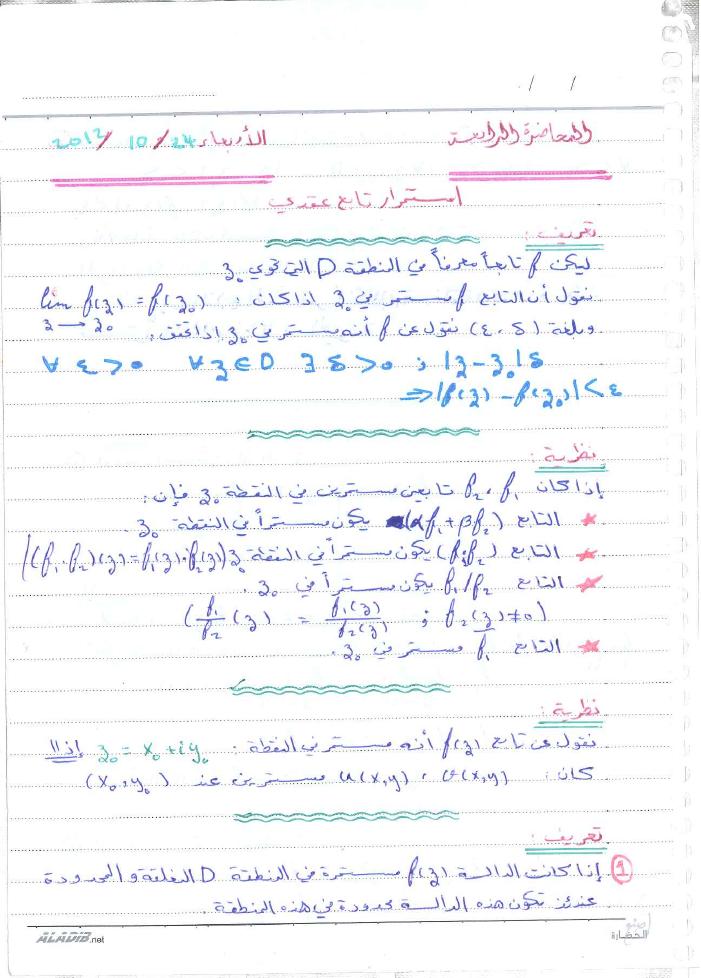 / /
المحاضرة الرابعة الأربعاء 24/10/2012
استمرار تابع عقدي
تعريف:
ليكن f تابعاً معرفاً في النطقة D التي تحوي z₀
نقول أن التابع f مستمر في z₀ اذا كان: lim f(z) = f(z₀)
z → z₀
وبلغة (ε, δ) نقول عن f أنه مستمر في z₀ اذا تحقق:
∀ ε > 0 ∀ z ∈ D ∃ δ > 0 ; |z - z₀| δ
⇒ |f(z) - f(z₀)| < ε
نظرية:
إذا كان f₁, f₂ تابعين مستمرين في النقطة z₀ فإن:
* التابع (αf₁ + βf₂) يكون مستمراً في النقطة z₀.
* التابع (f₁f₂) يكون مستمراً في النقطة z₀ ((f₁·f₂)(z) = f₁(z)·f₂(z))
* التابع f₁/f₂ يكون مستمراً في z₀.
(f₁/f₂ (z) = f₁(z)/f₂(z) ; f₂(z) ≠ 0)
* التابع f̄₁ مستمر في z₀.
نظرية:
نقول عن تابع f(z) أنه مستمر في النقطة: z₀ = x₀ + iy₀ إذا
كان: u(x,y), v(x,y) مستمرين عند (x₀, y₀)
تعريف:
① إذا كانت الدالة f(z) مستمرة في المنطقة D المغلقة والمحدودة
عندئذ تكون هذه الدالة محدودة في هذه المنطقة.
ALADIB.net
الحضارة